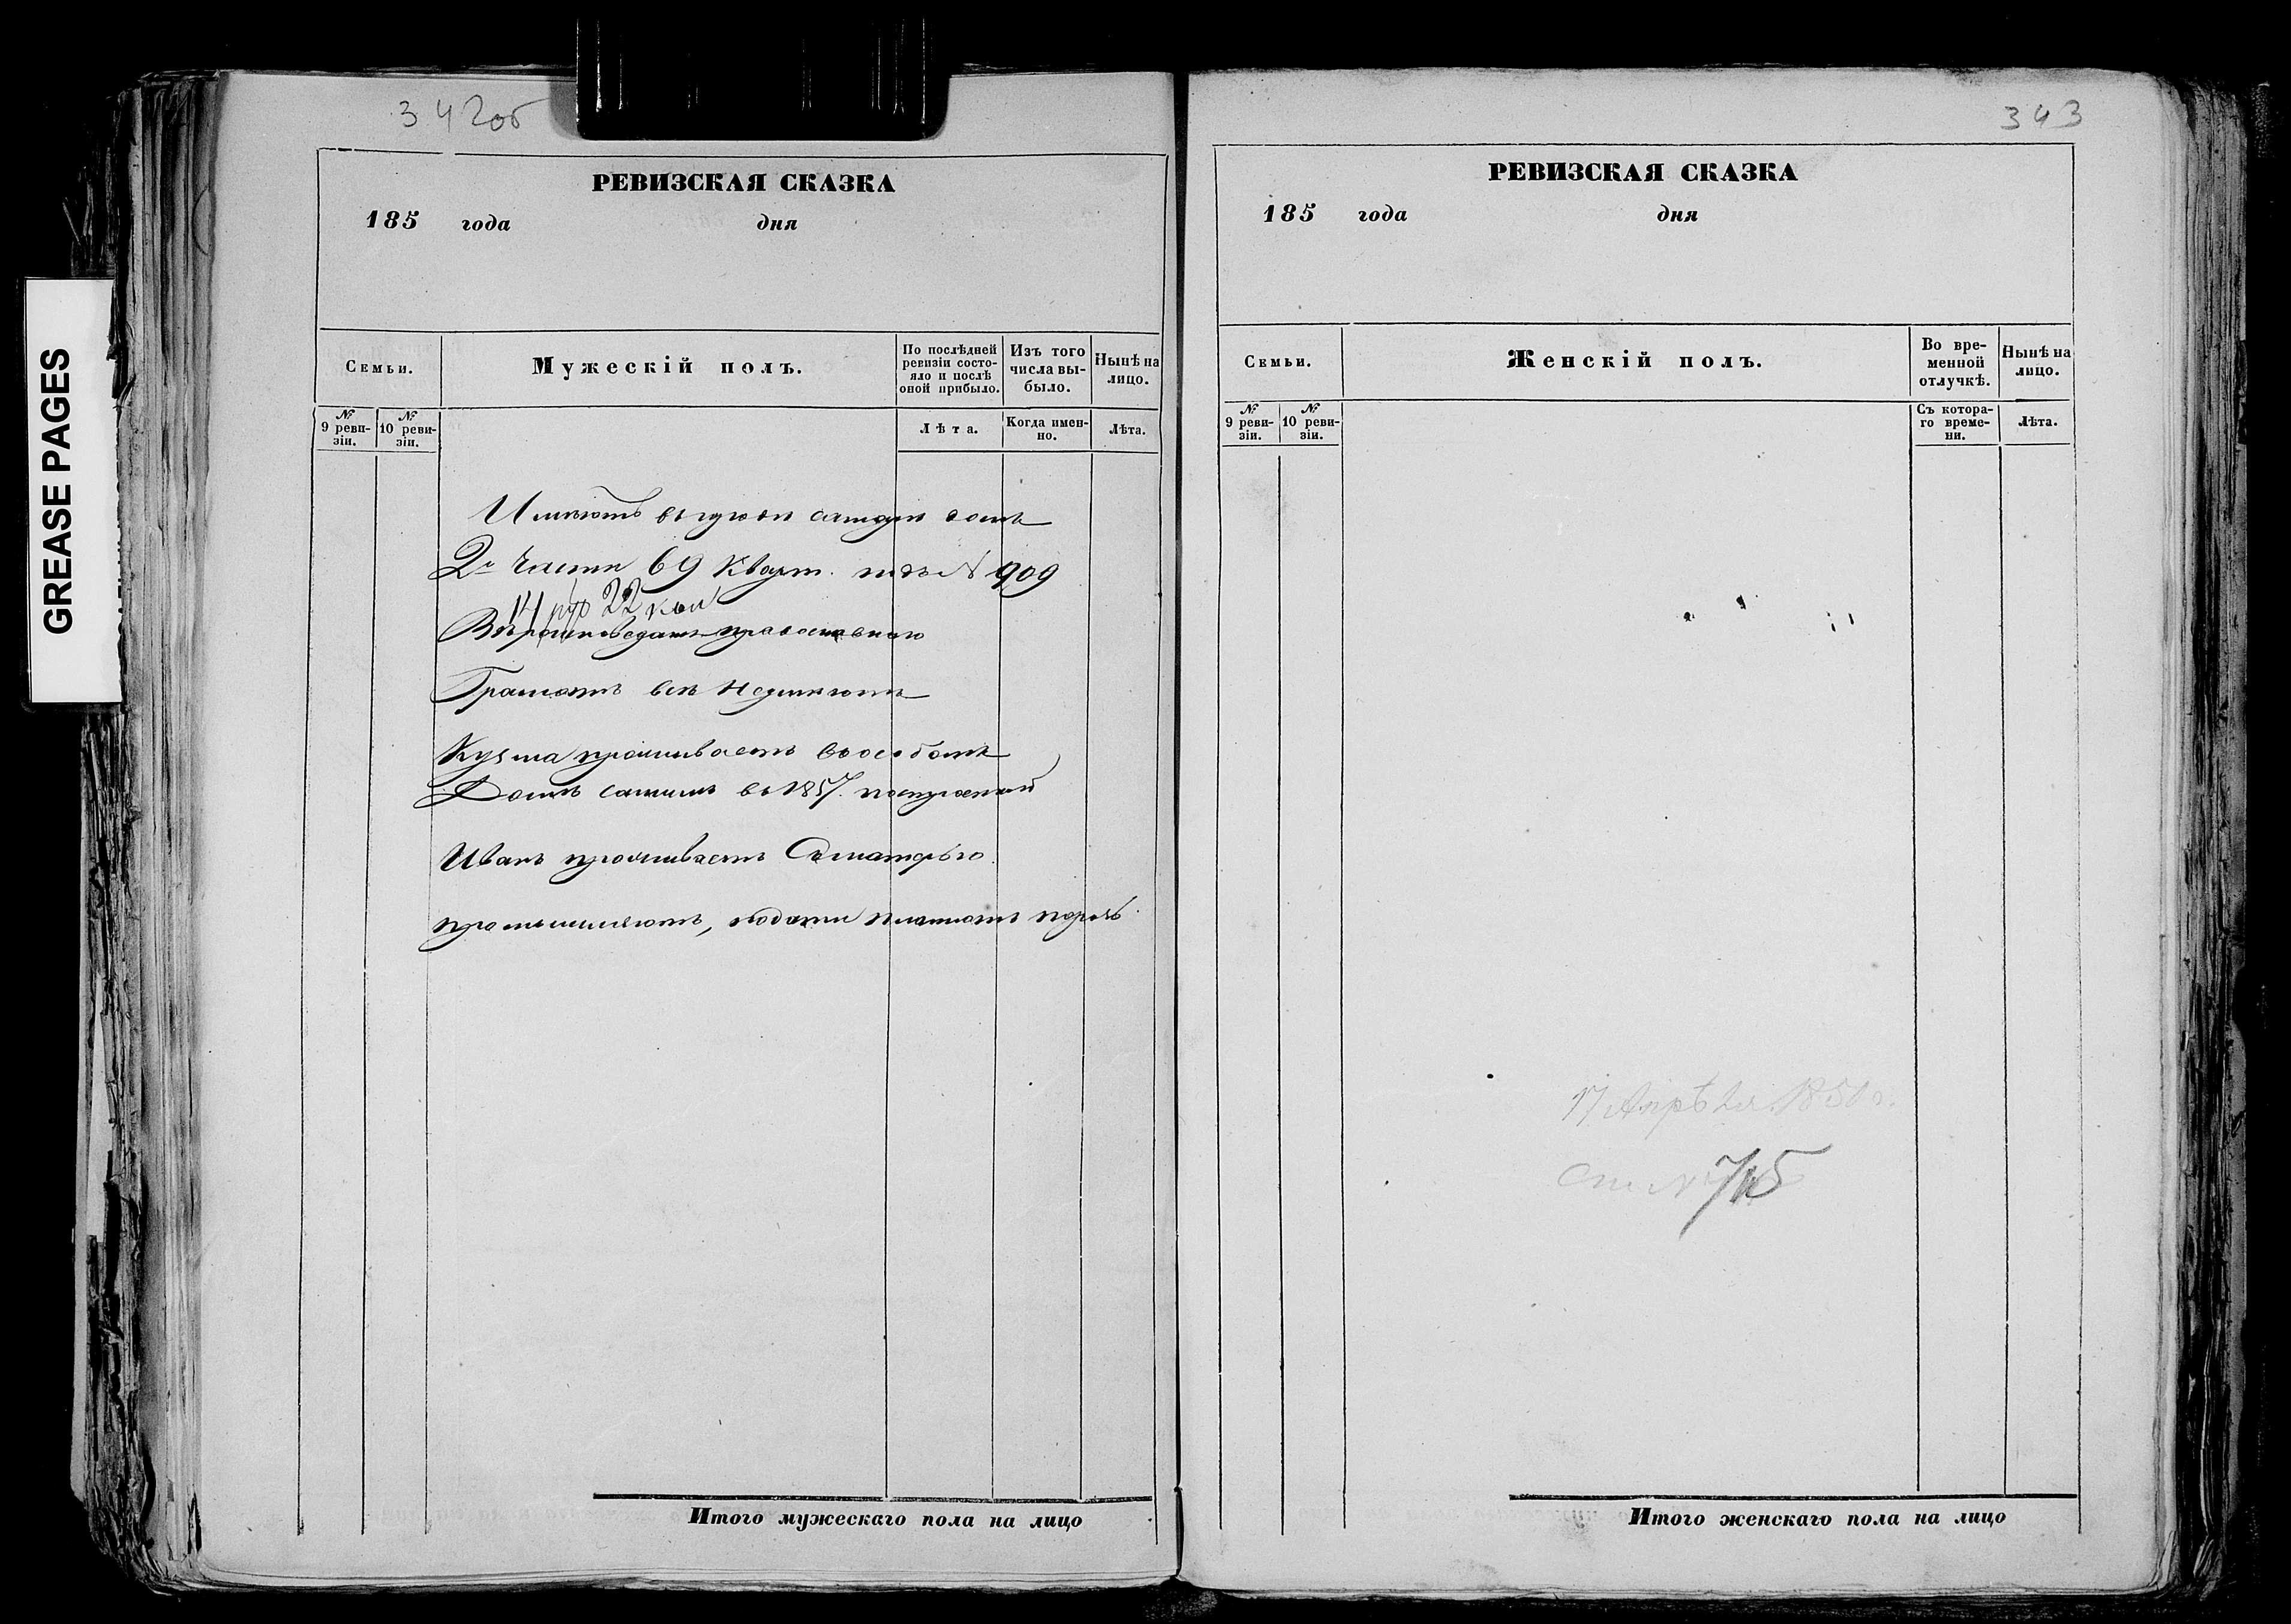 GREASE PAGES
342об
РЕВИЗСКАЯ СКАЗКА
185 года дня
Семьи.
Мужескій полъ.
По послѣдней ревизіи состояло и послѣ оной прибыло.
Изъ того числа выбыло.
Нынѣ на лицо.
№ 9 ревизіи.
№ 10 ревизіи.
Лѣта.
Когда именно.
Лѣта.
Имѣютъ домъ
2й части 69 Кварт. подъ № 909
14 руб 22 коп
Вѣроисповеданія православнаго
Грамотѣ всѣ неумѣютъ
Кузма проживаетъ въ особомъ
Домѣ самимъ въ 1857. построенной
Иванъ проживаетъ Съ матерью
промышляютъ, подати платятъ
343
РЕВИЗСКАЯ СКАЗКА
185 года дня
Семьи.
Женскій полъ.
Во временной отлучкѣ.
Нынѣ на лицо.
№ 9 ревизіи.
№ 10 ревизіи.
Съ котораго времени.
Лѣта.
17 Апрѣля 1850 г.
Итого мужескаго пола на лицо
Итого женскаго пола на лицо